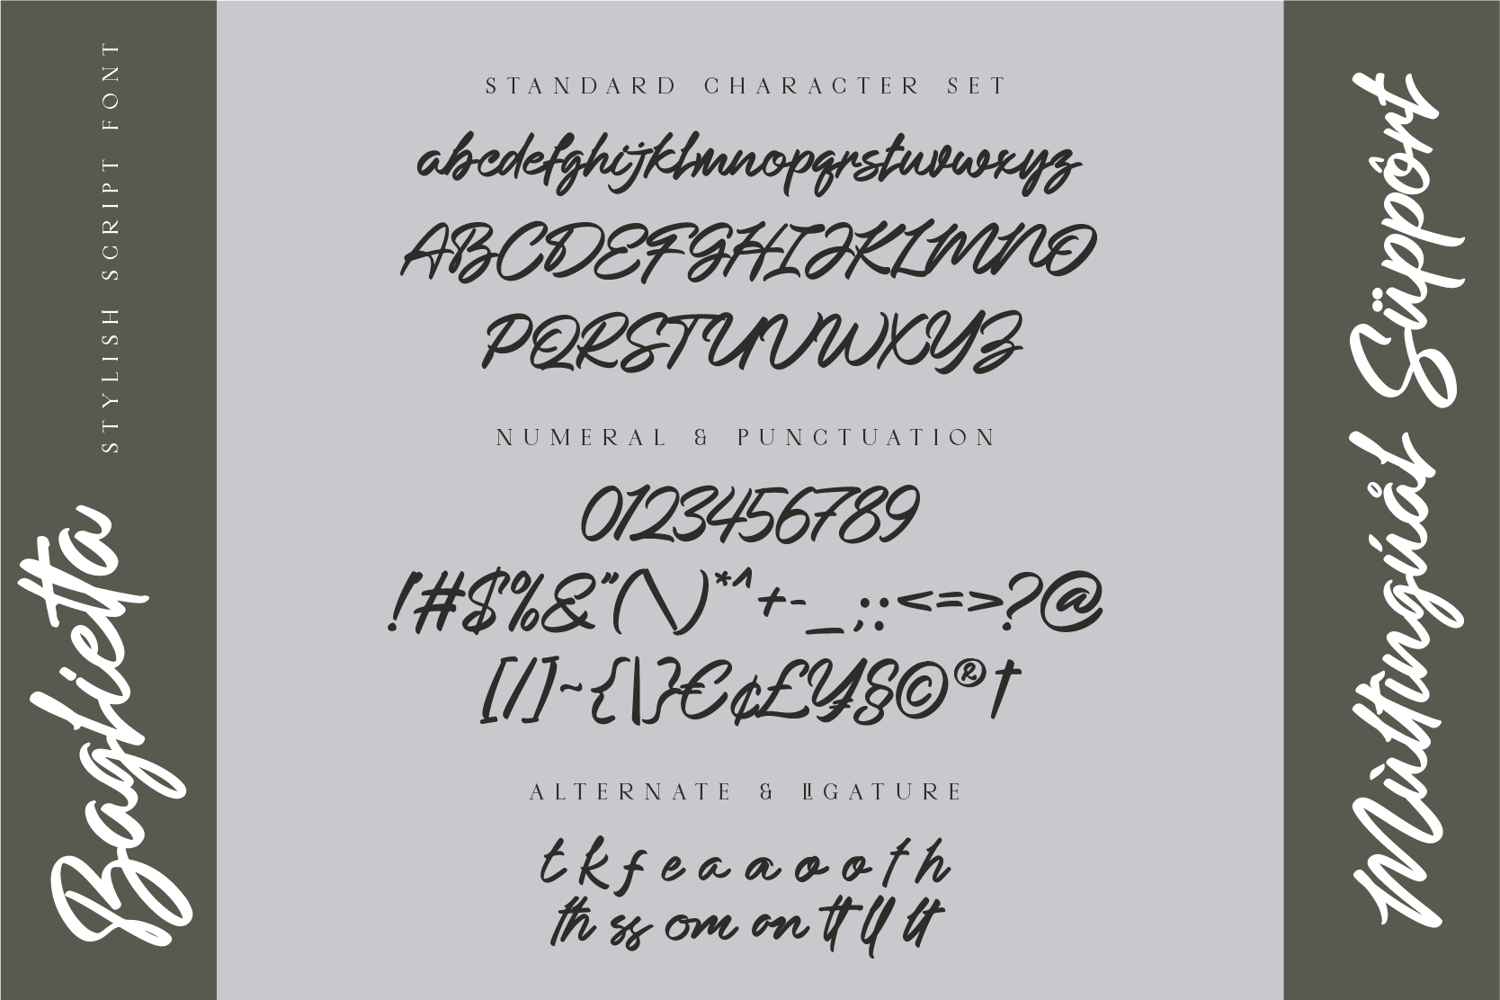 STYLISH SCRIPT FONT
Baghietta
STANDARD CHARACTER SET
abcdefghijklmnopqrstuvwxyz
ABCDEFGHIJKLMNO
PQRSTUVWXYZ
NUMERAL & PUNCTUATION
0123456789
!#$%&"(\)*^+-_;:<=>?@
[/]~{|}€¢£¥§©®†
ALTERNATE & LIGATURE
t k f e a a o o t h
th ss om an tt ll lt
Mùltingúål Süppôrt